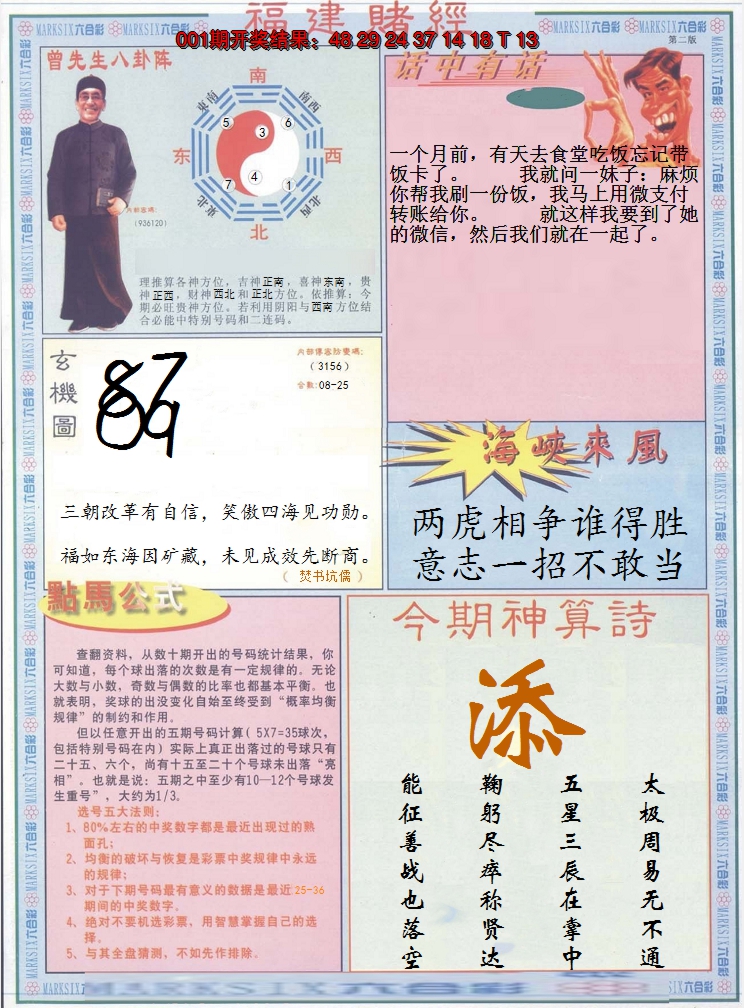 福建賭經
001期开奖结果：48 29 24 37 14 18 T 13
MARKSIX六合彩
第二版
曾先生八卦阵
南
東南
南西
5
6
3
东
西
4
7
1
東北
北西
北
內部密碼:
(936120)
理推算各神方位，吉神正南，喜神东南，贵
神正西，财神西北和正北方位。依推算：今
期必旺贵神方位。若利用阴阳与西南方位结
合必能中特别号码和二连码。
话中有话
一个月前，有天去食堂吃饭忘记带
饭卡了。 我就问一妹子：麻烦
你帮我刷一份饭，我马上用微支付
转账给你。 就这样我要到了她
的微信，然后我们就在一起了。
玄機圖
(3156)
合数:08-25
三朝改革有自信，笑傲四海见功勋。
福如东海因矿藏，未见成效先断商。
（ 焚书坑儒 ）
海峽來風
两虎相争谁得胜
意志一招不敢当
點馬公式
查翻资料，从数十期开出的号码统计结果，你
可知道，每个球出落的次数是有一定规律的。无论
大数与小数，奇数与偶数的比率也都基本平衡。也
就表明，奖球的出没变化自始至终受到“概率均衡
规律”的制约和作用。
但以任意开出的五期号码计算( 5X7=35球次，
包括特别号码在内) 实际上真正出落过的号球只有
二十五、六个，尚有十五至二十个号球未出落“亮
相”。也就是说：五期之中至少有10—12个号球发
生重号”，大约为1/3。
选号五大法则：
1、80%左右的中奖数字都是最近出现过的熟
面孔；
2、均衡的破坏与恢复是彩票中奖规律中永远
的规律；
3、对于下期号码最有意义的数据是最近25-36
期间的中奖数字。
4、绝对不要机选彩票，用智慧掌握自己的选
择。
5、与其全盘猜测，不如先作排除。
今期神算詩
添
太极周易无不通
五星三辰在掌中
鞠躬尽瘁称贤达
能征善战也落空